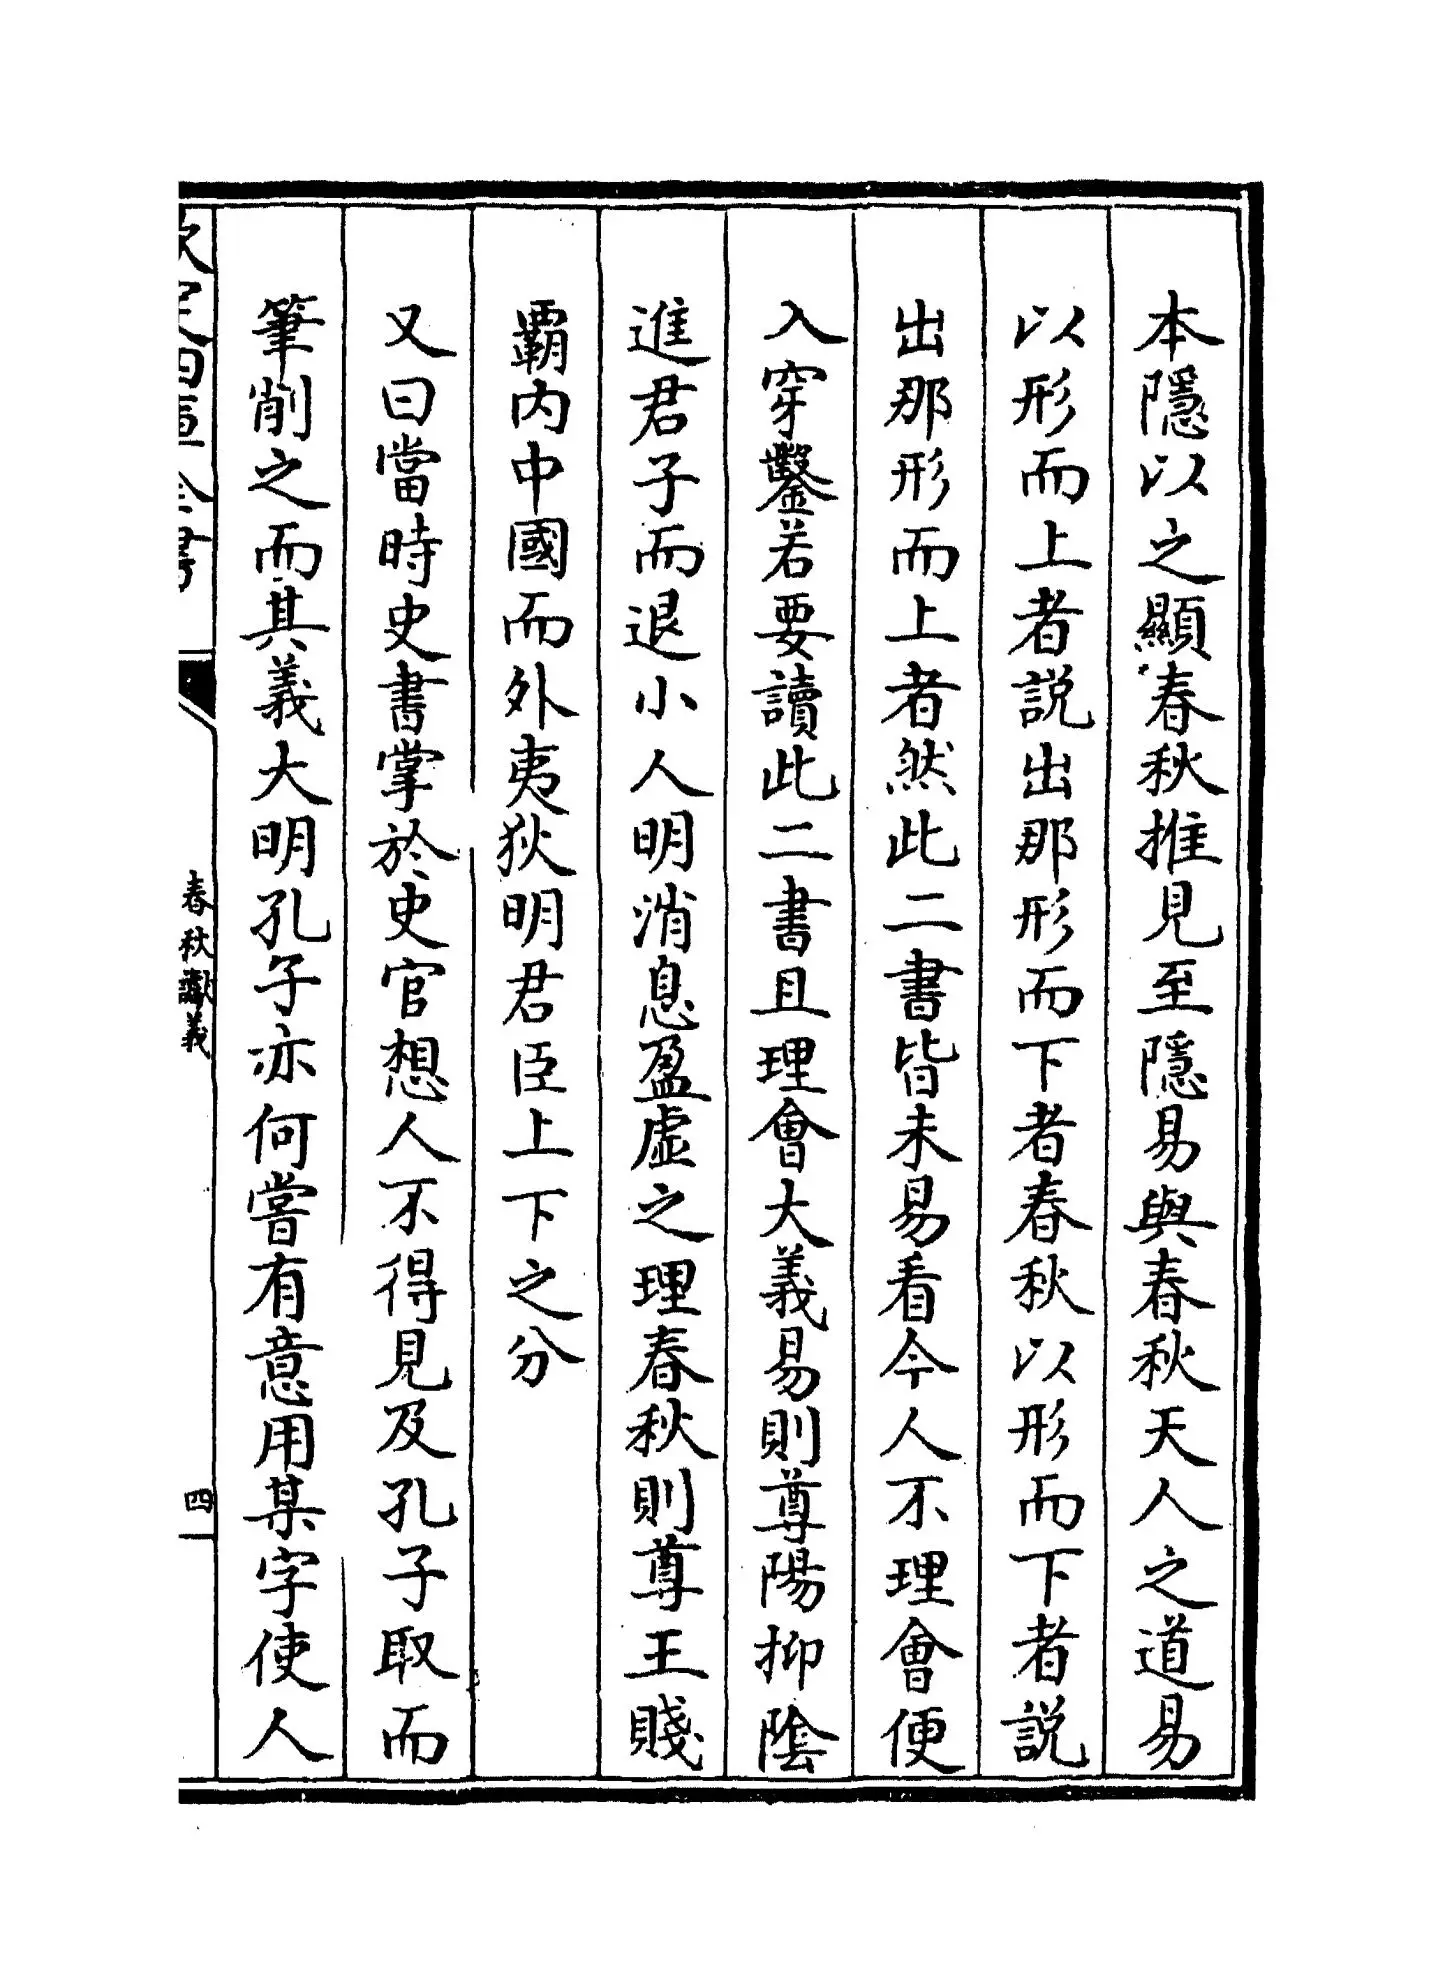 本隱以之顯春秋推見至隱易與春秋天人之道易
以形而上者説出那形而下者春秋以形而下者説
出那形而上者然此二書皆未易看今人不理會便
入穿鑿若要讀此二書且理會大義易則尊陽抑陰
進君子而退小人明消息盈虚之理春秋則尊王賤
覇内中國而外夷狄明君臣上下之分
又曰當時史書掌於史官想人不得見及孔子取而
筆削之而其義大明孔子亦何嘗有意用某字使人
欽定四庫全書
春秋讞義
四